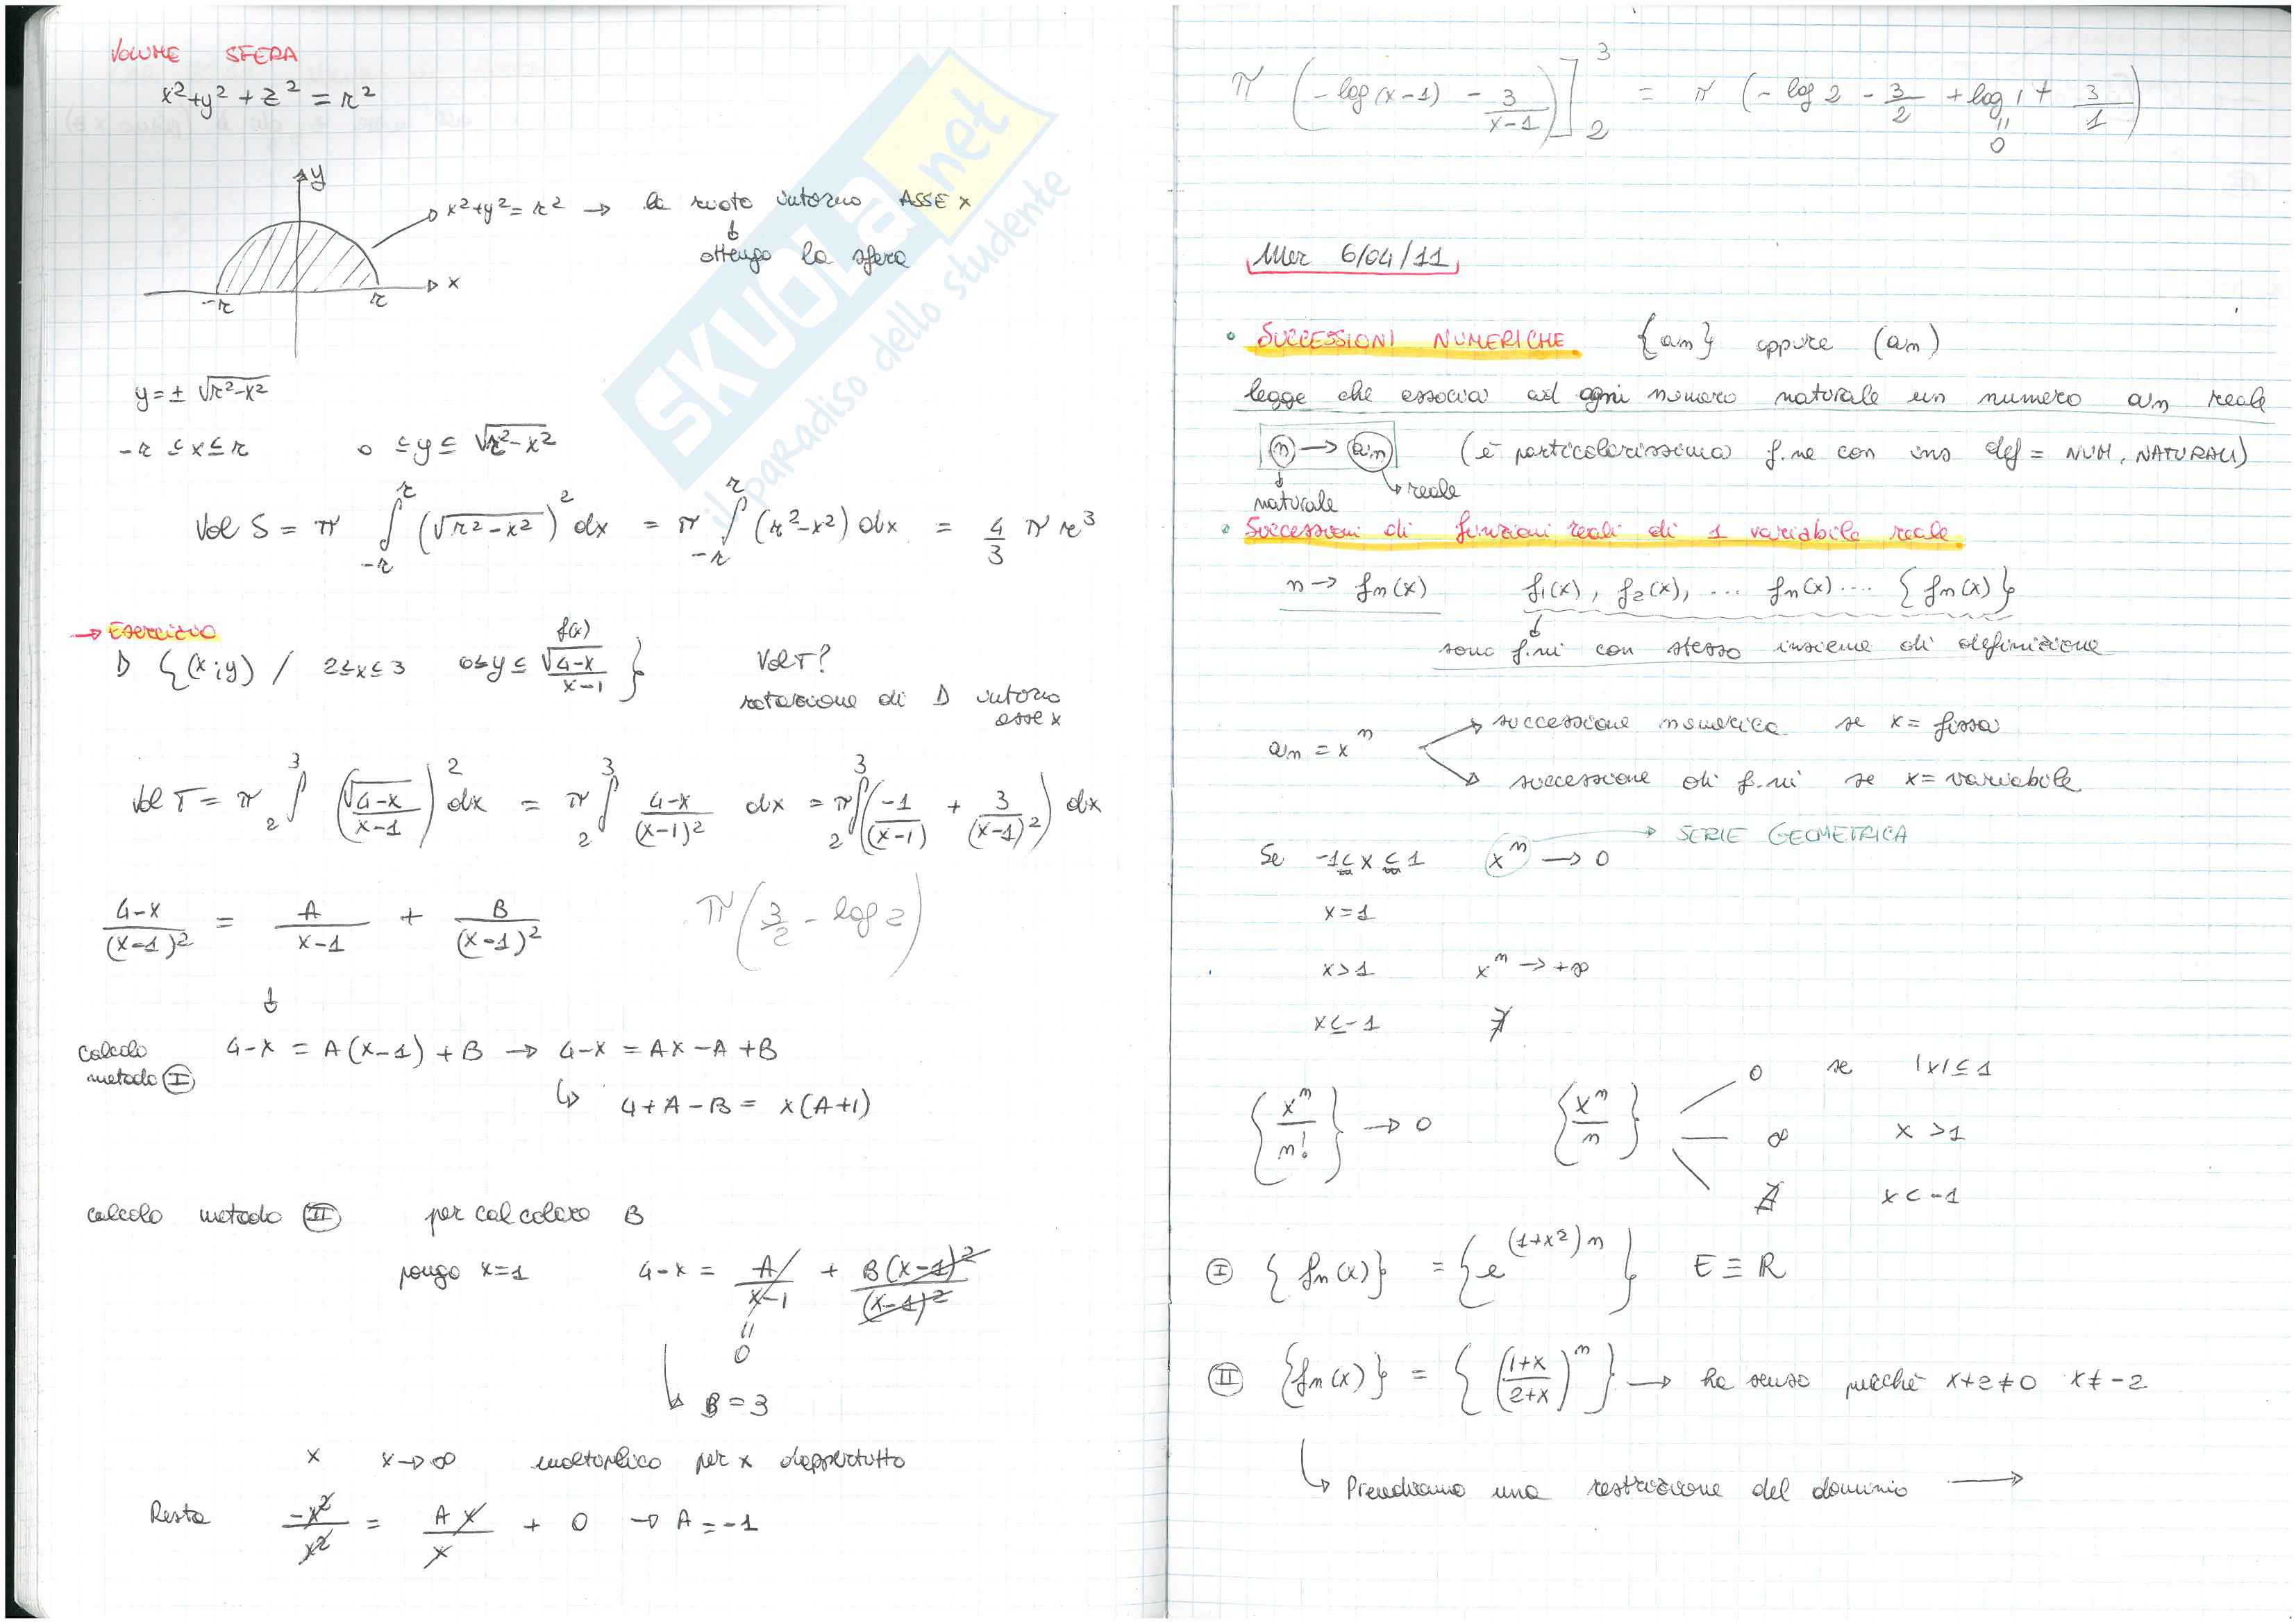 VOLUME SFERA
x²+y²+z² = r²
y
x²+y²=r² → la ruoto intorno ASSE x
↓
ottengo la sfera
-r r x
y = ± √r²-x²
-r ≤ x ≤ r 0 ≤ y ≤ √r²-x²
Vol S = π ∫_{-r}^{r} (√r²-x²)² dx = π ∫_{-r}^{r} (r²-x²) dx = 4/3 π r³
→ Esercizio
f(x)
D {(x;y) / 2≤x≤3 0≤y≤ √4-x / x-1 } Vol T?
rotazione di D intorno
asse x
Vol T = π ∫_2^3 (√4-x / x-1)² dx = π ∫_2^3 4-x/(x-1)² dx = π ∫_2^3 (-1/(x-1) + 3/(x-1)²) dx
4-x/(x-1)² = A/x-1 + B/(x-1)² π(3/2 - log 2)
↓
calcolo metodo I 4-x = A(x-1) + B → 4-x = Ax-A+B
↳ 4+A-B = x(A+1)
calcolo metodo II per calcolare B
pongo x=1 4-x = A/x-1 + B(x-1)²/(x-1)²
"
0
↳ B=3
x x→∞ moltiplico per x dappertutto
Resta -x²/x² = Ax/x + 0 → A=-1
π (-log(x-1) - 3/x-1)]_2^3 = π (-log 2 - 3/2 + log 1 + 3/1)
"
0
Mer 6/04/11
• SUCCESSIONI NUMERICHE {an} oppure (an)
legge che associa ad ogni numero naturale un numero an reale
n → an (è particolarissima f.ne con ins def = NUM. NATURALI)
naturale reale
• Successioni di funzioni reali di 1 variabile reale
n → fn(x) f1(x), f2(x), ... fn(x).... {fn(x)}
↓
sono f.ni con stesso insieme di definizione
→ successione numerica se x = fissa
an = xⁿ
→ successione di f.ni se x = variabile
→ SERIE GEOMETRICA
Se -1<x<1 xⁿ → 0
x=1
x>1 xⁿ → +∞
x≤-1 ∄
{xⁿ/n!} → 0 {xⁿ/n} 0 se |x|≤1
∞ x>1
∄ x<-1
I {fn(x)} = {e^{(1+x²)n}} E ≡ R
II {fn(x)} = {(1+x/2+x)ⁿ} → ha senso purché x+2≠0 x≠-2
↳ Prendiamo una restrizione del dominio →
SKUOLA.net
il paradiso dello studente